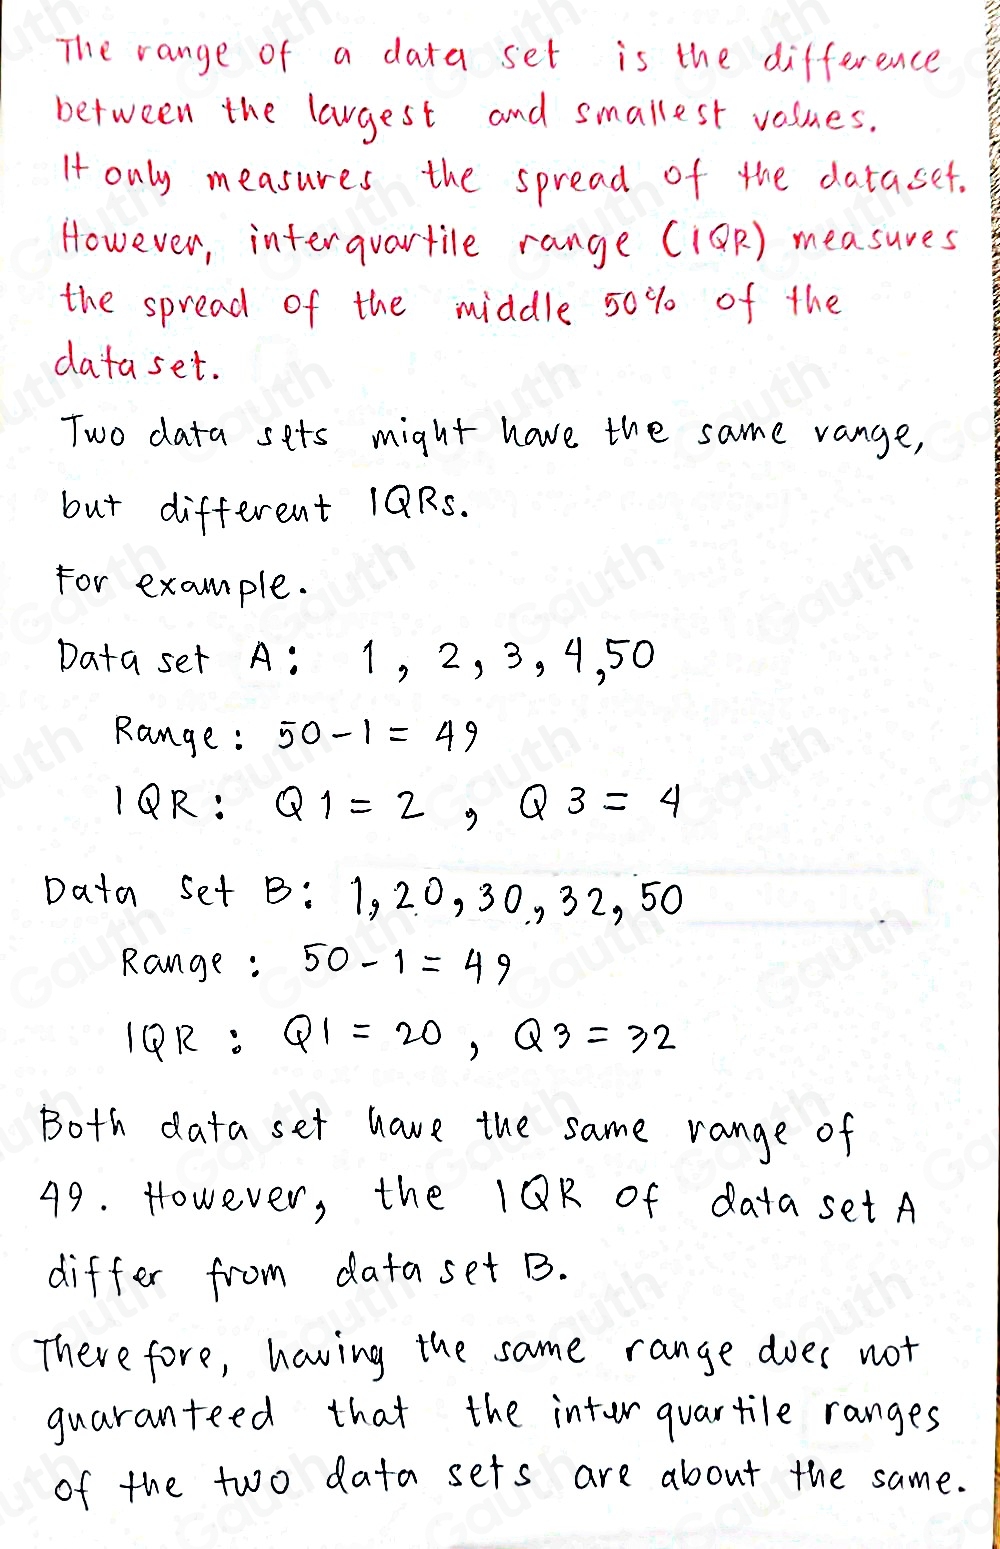 The range of a data set is the difference
between the largest and smallest values.
It only measures the spread of the dataset.
However, interquartile range (IQR) measures
the spread of the middle 50% of the
data set.
Two data sets might have the same range,
but different IQRs.
For example.
Data set A: 1, 2, 3, 4, 50
Range: 50 - 1 = 49
IQR: Q1 = 2, Q3 = 4
Data set B: 1, 20, 30, 32, 50
Range: 50 - 1 = 49
IQR: Q1 = 20, Q3 = 32
Both data set have the same range of
49. However, the IQR of data set A
differ from data set B.
Therefore, having the same range does not
guaranteed that the interquartile ranges
of the two data sets are about the same.